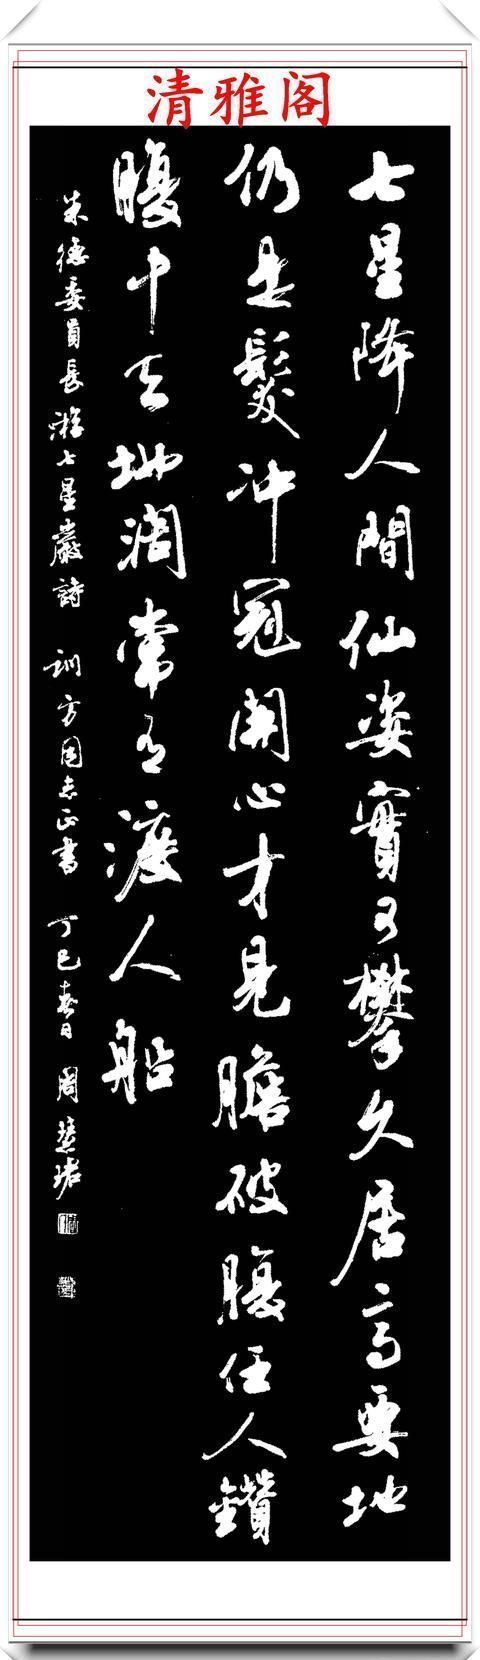 清雅阁
七星降人間仙姿實可攀久居高要地
仍是髮冲冠開心才見膽破腹任人鑽
腹中天地濶常有渡人船
朱德委員長游七星巖詩 訓方同志正書 丁巳春日 周慧珺